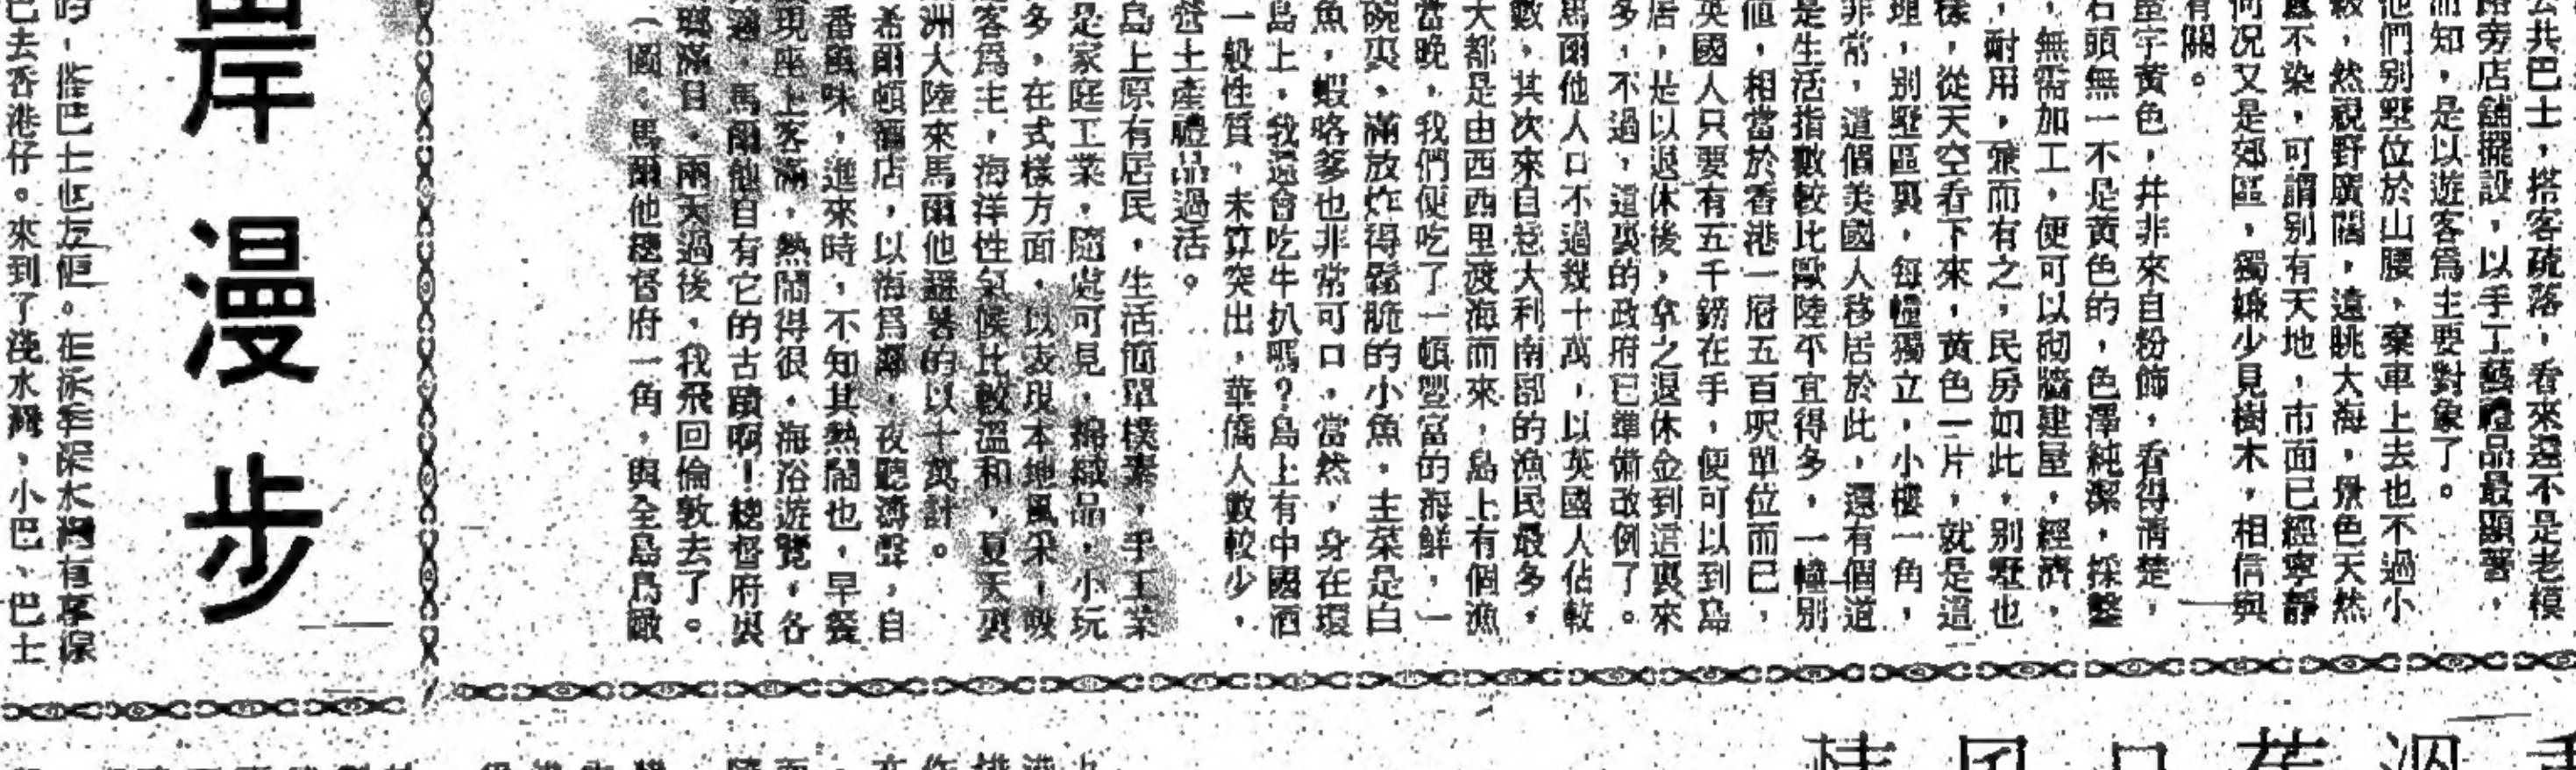 去共巴士，搭客疏落，看來還不是老模
路旁店舖擺設，以手工藝禮品最顯著，
而知，是以遊客爲主要對象了。
他們別墅位於山腰，棄車上去也不過小
較，然視野廣闊，遠眺大海，景色天然
塵不染，可謂別有天地，市面已經寧靜
何况又是郊區，獨嫌少見樹木，相信與
有關。
屋宇黄色，并非來自粉飾，看得清楚，
石頭無一不是黄色的，色澤純潔，採整
，無需加工，便可以砌牆建屋，經濟，
，耐用，兼而有之，民房如此，別墅也
樣，從天空看下來，黄色一片，就是這
理，別墅區裏，每幢獨立，小樓一角，
非常，這個美國人移居於此，還有個道
是生活指數較比歐陸不宜得多，一幢別
值，相當於香港一層五百呎單位而已，
英國人只要有五千鎊在手，便可以到島
居，是以退休後，拿之退休金到這裏來
多，不過，這裏的政府已準備改例了。
馬爾他人口不過幾十萬，以英國人佔較
數，其次來自意大利南部的漁民最多，
大都是由西西里渡海而來，島上有個漁
當晚，我們便吃了一頓豐富的海鮮，一
碗裏，滿放炸得鬆脆的小魚，主菜是白
魚，蝦咯爹也非常可口，當然，身在環
島上，我還會吃牛扒嗎？島上有中國酒
一般性質，未算突出，華僑人數較少，
營土產禮品過活。
島上原有居民，生活簡單樸素，手工業
是家庭工業，隨處可見，棉織品，小玩
多，在式樣方面，以表現本地風采，吸
客爲主，海洋性氣候比較溫和，夏天裏
洲大陸來馬爾他避暑的以十萬計。
希爾頓酒店，以海爲鄰，夜聽濤聲，自
番風味，進來時，不知其熱鬧也，早餐
現座上客滿，熱鬧得很，海浴遊覽，各
適，馬爾他自有它的古蹟啊！總督府裏
瑯滿目，兩天過後，我飛回倫敦去了。
（圖：馬爾他總督府一角，與全島鳥瞰
岸漫步
，搭巴士也方便。在淺水灣有
巴去香港仔。來到了淺水灣，小巴、巴士